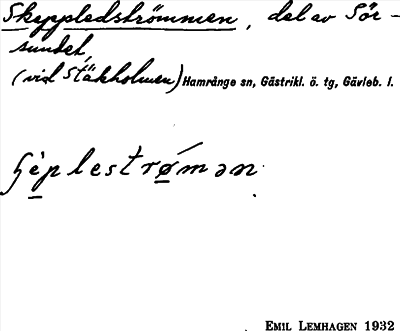 Skeppledströmmen, del av Sör-
sundet,
(vid Stäkholmen) Hamrånge sn, Gästrikl. ö. tg, Gävleb. l.
ɧèplestrǿmən
EMIL LEMHAGEN 1932